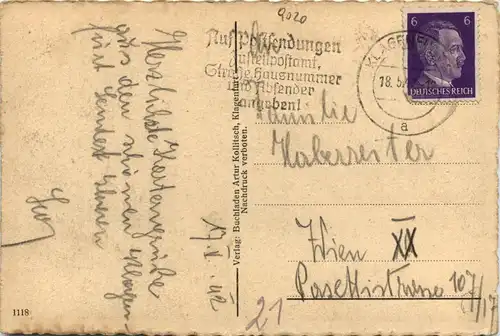 Herzlichste Kartengrüße
aus dem schönen Klagen-
furt sendet Ihnen
17.V.42
1118
Verlag: Buchladen Artur Kollitsch, Klagenfurt
Nachdruck verboten.
9020
Auf Postsendungen
Zustellpostamt,
Straße, Hausnummer
und Absender
angeben!
KLAGENFURT
18.5.
a
6 6
DEUTSCHES REICH
An
Familie
Haberreiter
Wien XX
Pasettistrasse 107
/17
21